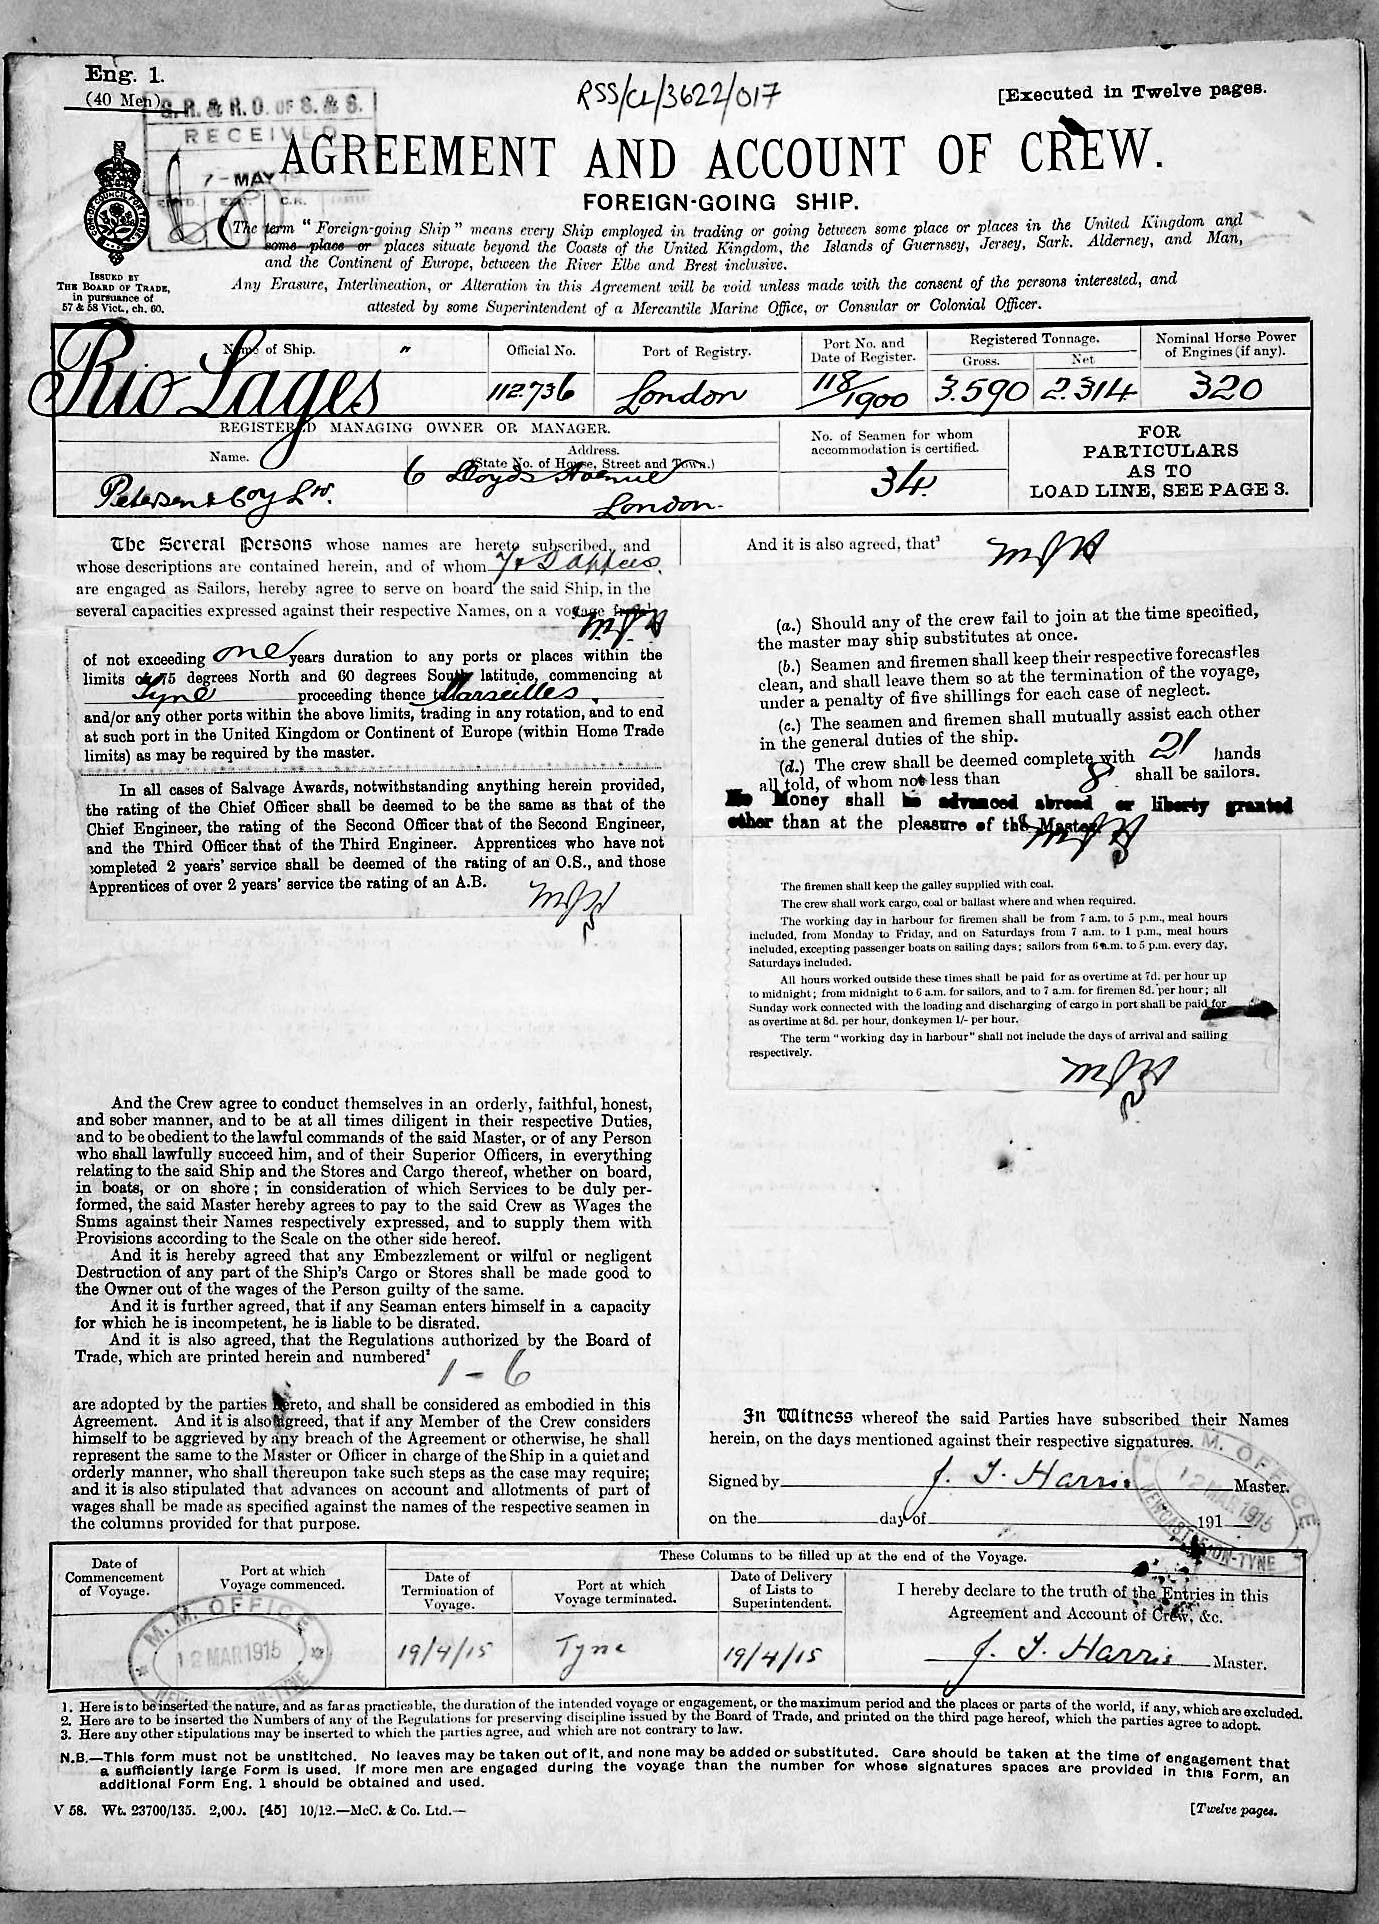 Eng. 1.
(40 Men)
RSS/CL/3622/017
[Executed in Twelve pages.
G. R. & R. O. OF S. & S.
RECEIVED
7 - MAY
AGREEMENT AND ACCOUNT OF CREW.
FOREIGN-GOING SHIP.
ISSUED BY
THE BOARD OF TRADE,
in pursuance of
57 & 58 Vict., ch. 60.
The term "Foreign-going Ship" means every Ship employed in trading or going between some place or places in the United Kingdom and
some place or places situate beyond the Coasts of the United Kingdom, the Islands of Guernsey, Jersey, Sark. Alderney, and Man,
and the Continent of Europe, between the River Elbe and Brest inclusive.
Any Erasure, Interlineation, or Alteration in this Agreement will be void unless made with the consent of the persons interested, and
attested by some Superintendent of a Mercantile Marine Office, or Consular or Colonial Officer.
Name of Ship.
Official No.
Port of Registry.
Port No. and
Date of Register.
Registered Tonnage.
Gross.
Net
Nominal Horse Power
of Engines (if any).
Rio Lages
112.736
London
118/1900
3.590
2.314
320
REGISTERED MANAGING OWNER OR MANAGER.
Name.
Address.
(State No. of House, Street and Town.)
No. of Seamen for whom
accommodation is certified.
FOR
PARTICULARS
AS TO
LOAD LINE, SEE PAGE 3.
Petersen & Coy Ltd.
6 Lloyds Avenue
London.
34.
The Several Persons whose names are hereto subscribed, and
whose descriptions are contained herein, and of whom
are engaged as Sailors, hereby agree to serve on board the said Ship, in the
several capacities expressed against their respective Names, on a voyage from
of not exceeding one years duration to any ports or places within the
limits of 75 degrees North and 60 degrees South latitude, commencing at
Tyne proceeding thence to Marseilles.
and/or any other ports within the above limits, trading in any rotation, and to end
at such port in the United Kingdom or Continent of Europe (within Home Trade
limits) as may be required by the master.
In all cases of Salvage Awards, notwithstanding anything herein provided,
the rating of the Chief Officer shall be deemed to be the same as that of the
Chief Engineer, the rating of the Second Officer that of the Second Engineer,
and the Third Officer that of the Third Engineer. Apprentices who have not
completed 2 years' service shall be deemed of the rating of an O.S., and those
Apprentices of over 2 years' service the rating of an A.B.
And the Crew agree to conduct themselves in an orderly, faithful, honest,
and sober manner, and to be at all times diligent in their respective Duties,
and to be obedient to the lawful commands of the said Master, or of any Person
who shall lawfully succeed him, and of their Superior Officers, in everything
relating to the said Ship and the Stores and Cargo thereof, whether on board,
in boats, or on shore; in consideration of which Services to be duly per-
formed, the said Master hereby agrees to pay to the said Crew as Wages the
Sums against their Names respectively expressed, and to supply them with
Provisions according to the Scale on the other side hereof.
And it is hereby agreed that any Embezzlement or wilful or negligent
Destruction of any part of the Ship's Cargo or Stores shall be made good to
the Owner out of the wages of the Person guilty of the same.
And it is further agreed, that if any Seaman enters himself in a capacity
for which he is incompetent, he is liable to be disrated.
And it is also agreed, that the Regulations authorized by the Board of
Trade, which are printed herein and numbered²
1 - 6
are adopted by the parties hereto, and shall be considered as embodied in this
Agreement. And it is also agreed, that if any Member of the Crew considers
himself to be aggrieved by any breach of the Agreement or otherwise, he shall
represent the same to the Master or Officer in charge of the Ship in a quiet and
orderly manner, who shall thereupon take such steps as the case may require;
and it is also stipulated that advances on account and allotments of part of
wages shall be made as specified against the names of the respective seamen in
the columns provided for that purpose.
And it is also agreed, that³
(a.) Should any of the crew fail to join at the time specified,
the master may ship substitutes at once.
(b.) Seamen and firemen shall keep their respective forecastles
clean, and shall leave them so at the termination of the voyage,
under a penalty of five shillings for each case of neglect.
(c.) The seamen and firemen shall mutually assist each other
in the general duties of the ship.
(d.) The crew shall be deemed complete with 21 hands
all told, of whom not less than 8 shall be sailors.
No Money shall be advanced abroad or liberty granted
other than at the pleasure of the Master.
The firemen shall keep the galley supplied with coal.
The crew shall work cargo, coal or ballast where and when required.
The working day in harbour for firemen shall be from 7 a.m. to 5 p.m., meal hours
included, from Monday to Friday, and on Saturdays from 7 a.m. to 1 p.m., meal hours
included, excepting passenger boats on sailing days; sailors from 6 a.m. to 5 p.m. every day,
Saturdays included.
All hours worked outside these times shall be paid for as overtime at 7d. per hour up
to midnight; from midnight to 6 a.m. for sailors, and to 7 a.m. for firemen 8d. per hour; all
Sunday work connected with the loading and discharging of cargo in port shall be paid for
as overtime at 8d. per hour, donkeymen 1/- per hour.
The term "working day in harbour" shall not include the days of arrival and sailing
respectively.
In Witness whereof the said Parties have subscribed their Names
herein, on the days mentioned against their respective signatures.
Signed by J. T. Harris Master.
on the day of 191
M. M. OFFICE
12 MAR 1915
NEWCASTLE-ON-TYNE
Date of
Commencement
of Voyage.
Port at which
Voyage commenced.
These Columns to be filled up at the end of the Voyage.
Date of
Termination of
Voyage.
Port at which
Voyage terminated.
Date of Delivery
of Lists to
Superintendent.
I hereby declare to the truth of the Entries in this
Agreement and Account of Crew, &c.
M. M. OFFICE
12 MAR 1915
19/4/15
Tyne
19/4/15
J. T. Harris Master.
1. Here is to be inserted the nature, and as far as practicable, the duration of the intended voyage or engagement, or the maximum period and the places or parts of the world, if any, which are excluded.
2. Here are to be inserted the Numbers of any of the Regulations for preserving discipline issued by the Board of Trade, and printed on the third page hereof, which the parties agree to adopt.
3. Here any other stipulations may be inserted to which the parties agree, and which are not contrary to law.
N.B.—This form must not be unstitched. No leaves may be taken out of it, and none may be added or substituted. Care should be taken at the time of engagement that
a sufficiently large Form is used. If more men are engaged during the voyage than the number for whose signatures spaces are provided in this Form, an
additional Form Eng. 1 should be obtained and used.
V 58. Wt. 23700/135. 2,000. [45] 10/12.—McC. & Co. Ltd.—
[Twelve pages.